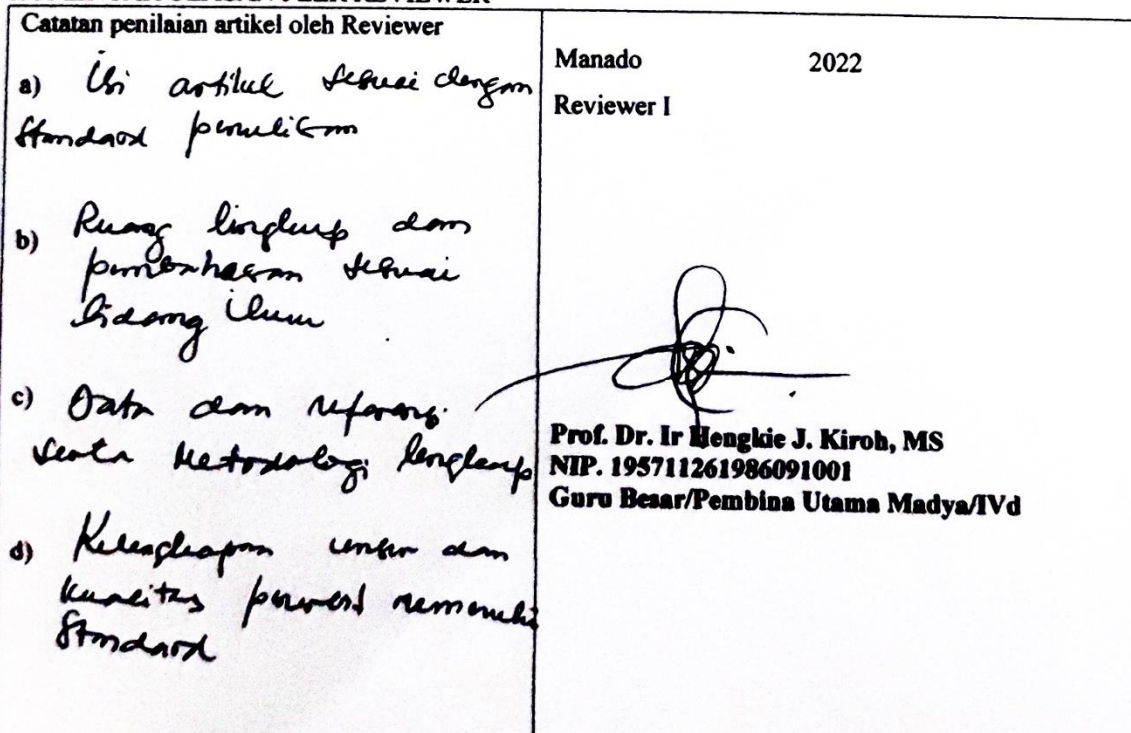 Catatan penilaian artikel oleh Reviewer
a) Isi artikel sesuai dengan
Standard penulisan
b) Ruang lingkup dan
pembahasan sesuai
bidang ilmu
c) Data dan
serta Metodologi lengkap
d) Kelengkapan unsur dan
kualitas memenuhi
Standard
Manado 2022
Reviewer I
Prof. Dr. Ir Hengkie J. Kiroh, MS
NIP. 195711261986091001
Guru Besar/Pembina Utama Madya/IVd